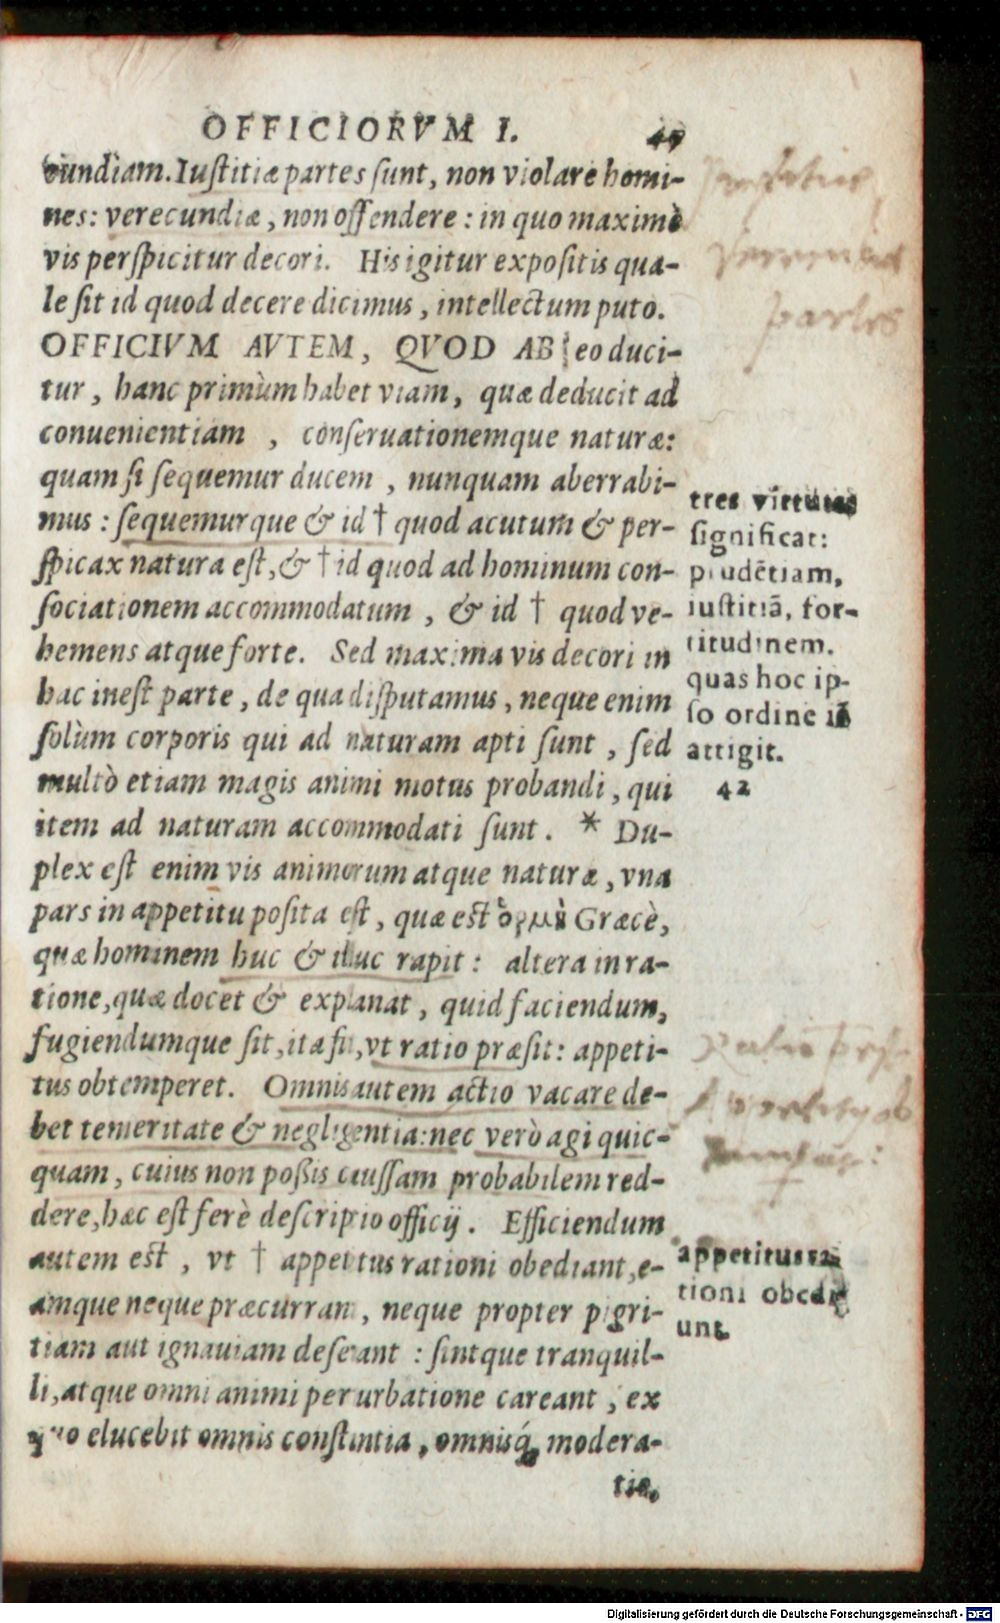 OFFICIORVM I.
cundiam. Iustitiæ partes sunt, non violare homi-
nes: verecundiæ, non offendere: in quo maximè
vis perspicitur decori. His igitur expositis qua-
le sit id quod decere dicimus, intellectum puto.
OFFICIVM AVTEM, QVOD AB eo duci-
tur, hanc primùm habet viam, quæ deducit ad
conuenientiam, conseruationemque naturæ:
quam si sequemur ducem, nunquam aberrabi-
mus: sequemurque & id † quod acutum & per-
spicax natura est, & † id quod ad hominum con-
sociationem accommodatum, & id † quod ve-
hemens atque forte. Sed maxima vis decori in
hac inest parte, de qua disputamus, neque enim
solùm corporis qui ad naturam apti sunt, sed
multò etiam magis animi motus probandi, qui
item ad naturam accommodati sunt. * Du-
plex est enim vis animorum atque naturæ, vna
pars in appetitu posita est, quæ est ὁρμὴ Græcè,
quæ hominem huc & illuc rapit: altera in ra-
tione, quæ docet & explanat, quid faciendum,
fugiendumque sit, ita fit, vt ratio præsit: appeti-
tus obtemperet. Omnis autem actio vacare de-
bet temeritate & negligentia: nec verò agi quic-
quam, cuius non possis caussam probabilem red-
dere, hæc est ferè descriptio officij. Efficiendum
autem est, vt † appetitus rationi obediant, e-
amque neque præcurrant, neque propter pigri-
tiam aut ignauiam deserant: sintque tranquil-
li, atque omni animi perturbatione careant, ex
quo elucebit omnis constantia, omnisq́; modera-
tio,
partes
tres virtutes
significat:
prudẽtiam,
iustitiã, for-
titudinem.
quas hoc ip-
so ordine
attigit.
42
appetitus ra-
tioni obedi-
unt.
Digitalisierung gefördert durch die Deutsche Forschungsgemeinschaft - DFG